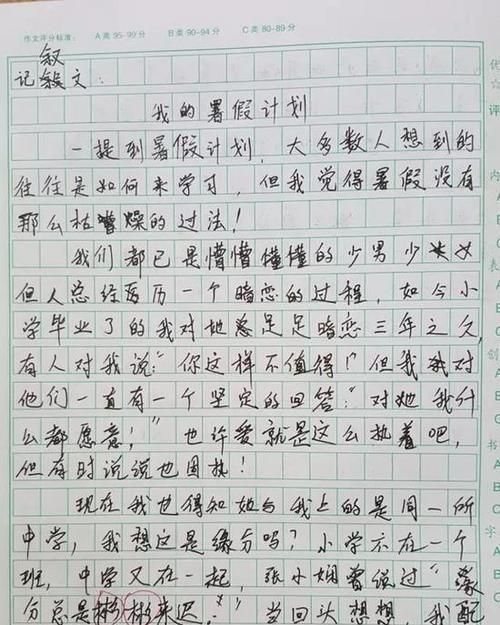 作文评分标准: A类95-99分 B类90-94分 C类80-89分
优
☆
评
内
A
B
C
表
A
B
C
创
A
B
C
字
A
叙
记 文:
我的暑假计划
一提到暑假计划,大多数人想到的
往往是如何来学习,但我觉得暑假没有
那么枯燥的过法!
我们都已是懵懵懂懂的少男少女
但人总经历一个暗恋的过程,如今小
学毕业了的我对她足足暗恋三年之久,
有人对我说:“你这样不值得!”但我对
他们一直有一个坚定的回答:“对她我什
么都愿意!”也许爱就是这么执着吧,
但有时说说也固执!
现在我也得知她与我上的是同一所
中学,我想这是缘分吗?小学不在一个
班,中学又在一起,张小娴曾说过“缘
分总是彬彬来迟。”当回头想想,我配